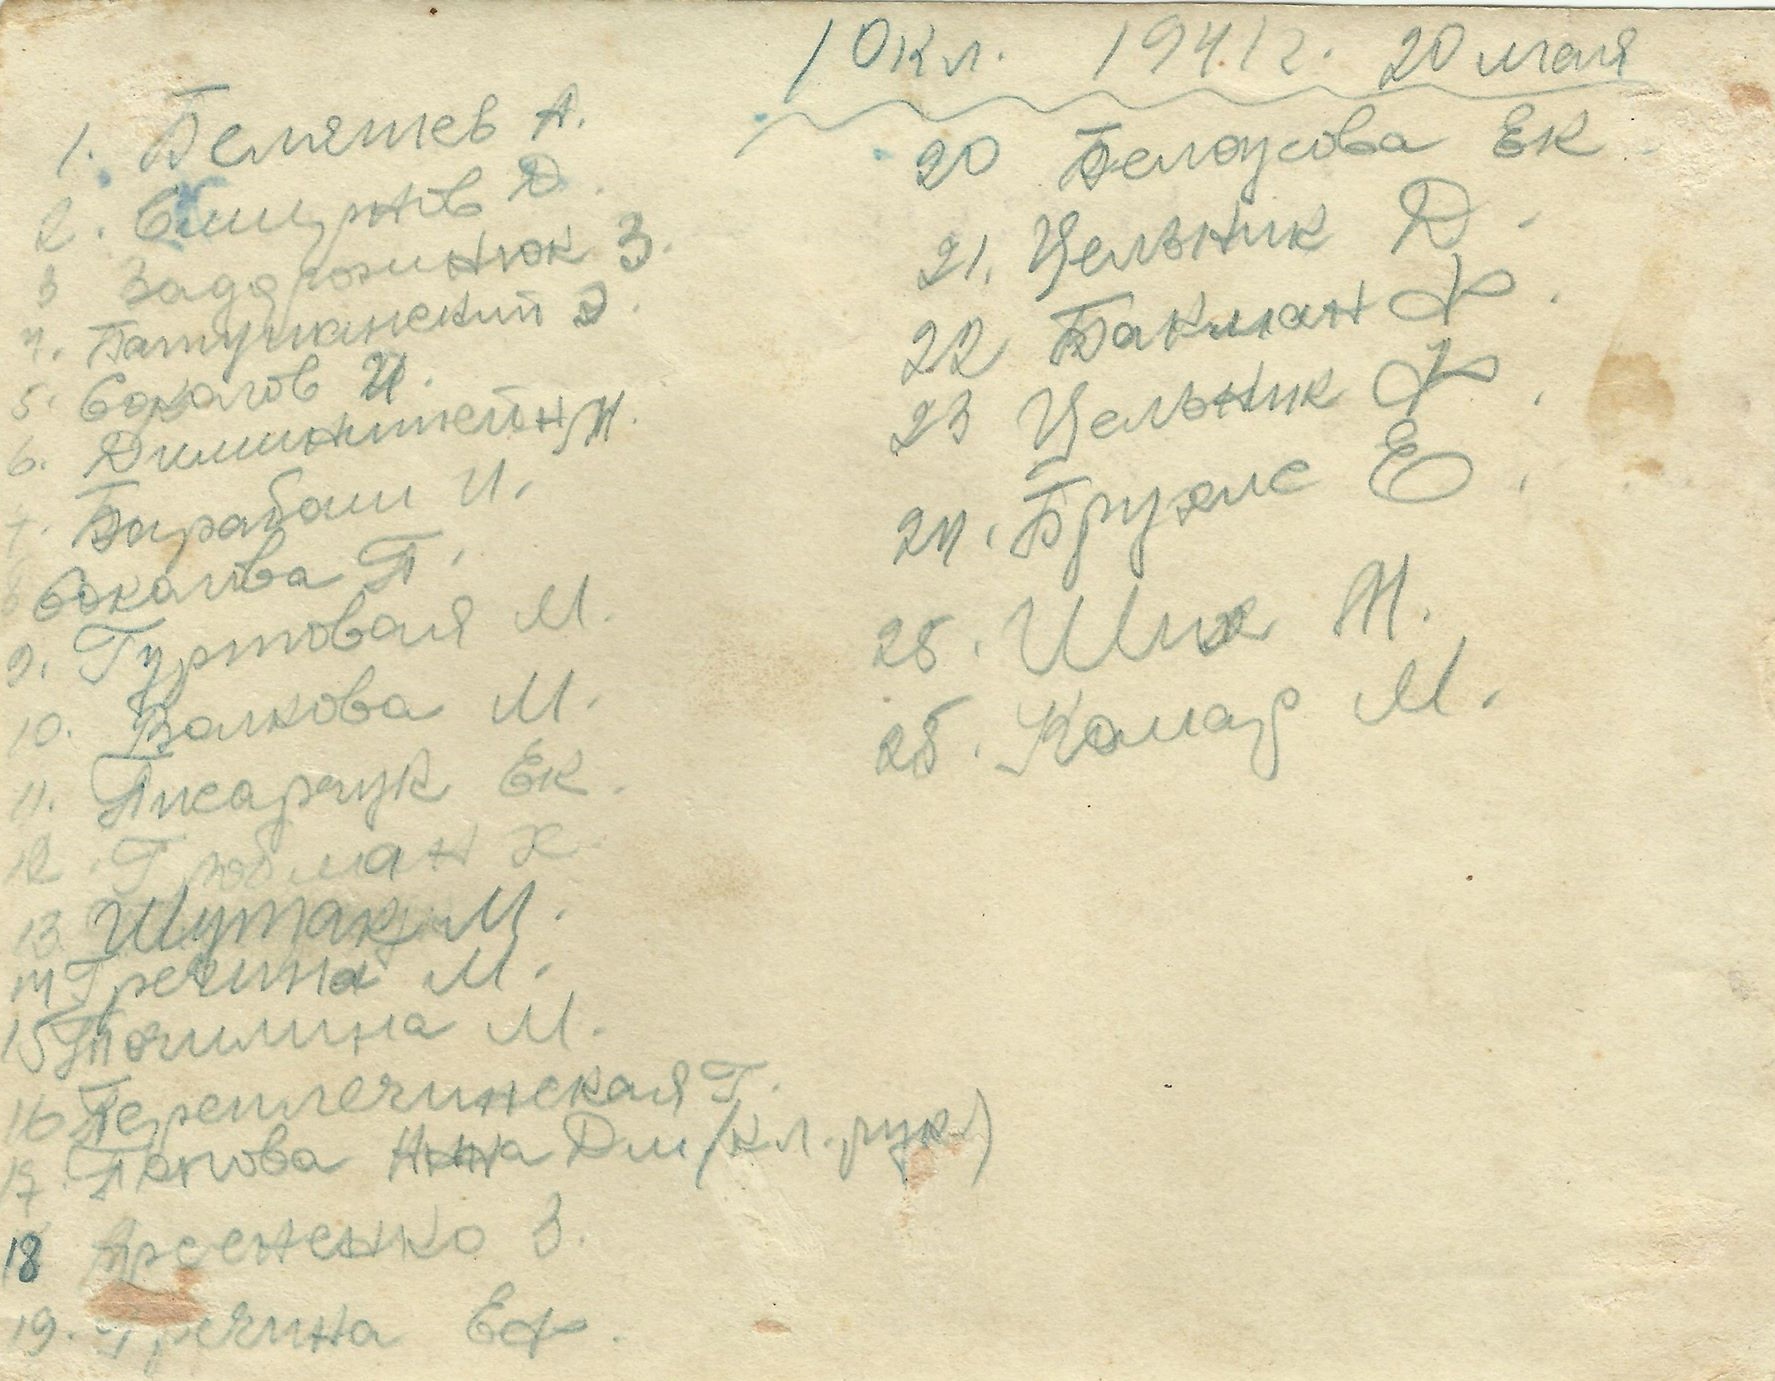 10 кл. 1941 г. 20 мая
1. Бемятев А.
2. Смирнов Д.
3 Задорожнюк З.
4. Батушанский Э.
5. Соколов И.
6. Диминштейн М.
7. Барабаш И.
8 Соколова П.
9. Гуртовая М.
10. Волкова М.
11. Писарчук Ек.
12. Глюбман Х.
13. Шутак М.
14 Гречина М.
15 Точилина М.
16 Переплечинская Г.
17. Панова Нина Дм (кл. рук.)
18 Арсененко З.
19. Гречина Еф.
20 Белоусова Ек.
21. Цельник Д.
22 Бакман Ф.
23 Цельник Ф.
24. Е.
25. Шик М.
25. Камар М.